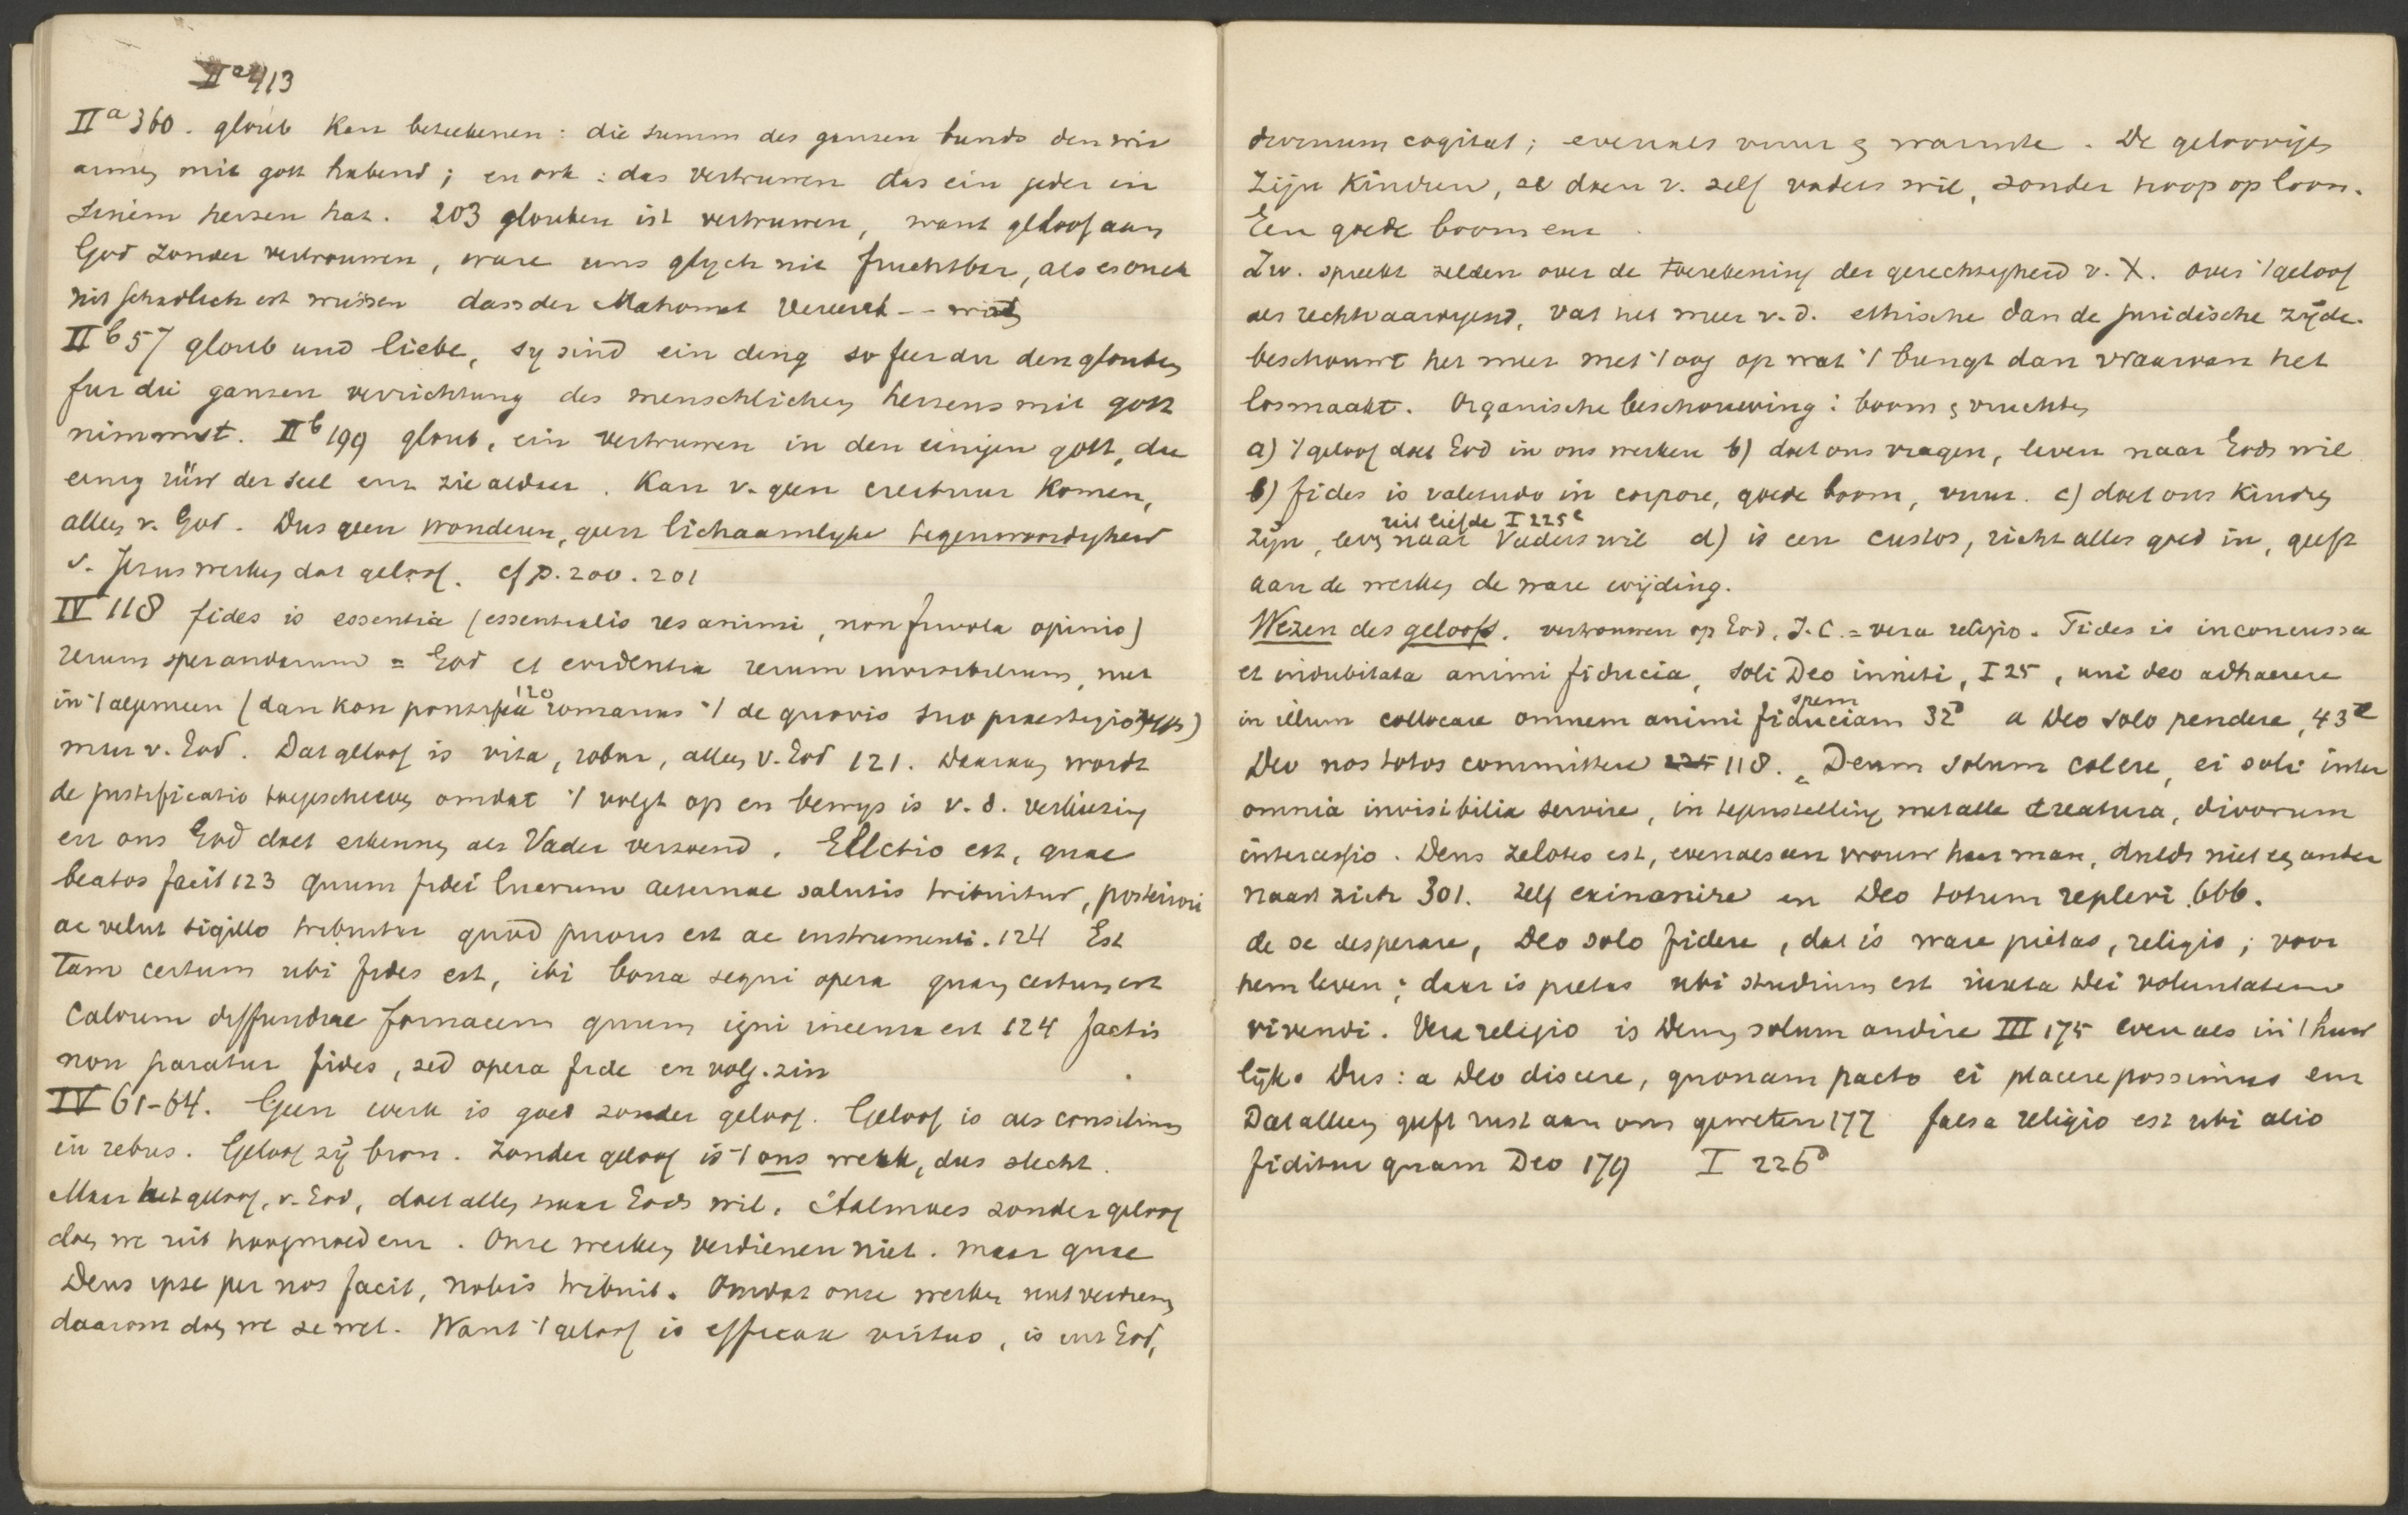 IIa 413
IIa 360. gloub kan beteekenen: die summ des ganzen bunds den wir
armen mit gott habend; en ook: das vertruwen das ein jeder in
sinem herzen hat. 203 glouben ist vertruwen, want geloof aan
God zonder vertrouwen, ware uns glych nit fruchtbar, als es ouch
nit schadlich ist wüssen dass der Mahomet vereert -- wird
IIb 57 gloub und liebe, sy sind ein ding so fer du den glouben
fur die ganzen verrichtung des menschlichen herzens mit gott
nimmst. IIb 199 gloub, ein vertruwen in den einigen gott, die
einig rüw der seel enz zie aldaar. Kan v. geen creatuur komen,
alleen v. God. Dus geen wonderen, geen lichaamlyke tegenwoordigheid
v. Jezus werken dat geloof. cf p. 200. 201
IV 118 fides is essentia (essentialis res animi, non frivola opinio)
rerum sperandarum = God et evidentia rerum invisibilium, niet
in 't algemeen (dan kon pontifex 120 romanus 't de quovis suo praestigio zeggen)
maar v. God. Dat geloof is vita, robur, alleen v. God 121. Daaraan wordt
de justificatio toegeschreven omdat 't volgt op en bewys is v. d. verkiezing
en ons God doet erkennen als Vader verzoend. Electio est, quae
beatos facit 123 quum fidei lucrum aeternae salutis tribuitur, posteriori
ac velut sigillo tribuitur quod prioris est ac instrumenti. 124 Est
tam certum ubi fides est, ibi bona sequi opera quam certum est
calorem diffundere fornacem quum igni incensa est 124 factis
non paratur fides, sed opera fide en volg. zin
IV 61-64. Geen werk is goed zonder geloof. Geloof is als consilium
in rebus. Geloof zij bron. Zonder geloof is 't ons werk, dus slecht.
Maar het geloof, v. God, doet alles naar Gods wil. Aalmoes zonder geloof
doen we uit hoogmoed enz. Onze werken verdienen niet. maar quae
Deus ipse per nos facit, nobis tribuit. Omdat onze werken niet verdienen
daarom doen we ze wel. Want 't geloof is efficax virtus, is uit God,
divinum cogitat; evenals vuur & warmte. De geloovigen
zijn kinderen, ze doen v. zelf vaders wil, zonder hoop op loon.
Een goede boom enz.
Zw. spreekt zelden over de toerekening der gerechtigheid v. X. over 't geloof
als rechtvaardigend, vat het meer v. d. ethische dan de juridische zijde.
beschouwt het meer met 't oog op wat 't brengt dan waarvan het
losmaakt. Organische beschouwing: boom & vruchten
a) 't geloof doet God in ons werken b) doet ons vragen, leven naar Gods wil
b) fides is valetudo in corpore, goede boom, vuur. c) doet ons kinderen
uit liefde I 225c
zijn, leven naar Vaders wil d) is een custos, richt alles goed in, geeft
aan de werken de ware wijding.
Wezen des geloofs. vertrouwen op God, J. C. = vera religio. Fides is inconcussa
et indubitata animi fiducia, soli Deo inniti, I 25, uni deo adhaerere
spem
in illum collocare omnem animi fiduciam 32b a Deo solo pendere, 43a
Deo nos totos committere 118. Deum solum colere, ei soli inter
omnia invisibilia servire, in tegenstelling met alle creatura, divorum
intercessio. Deus zelotes est, evenals een vrouw haar man, duldt niet een ander
naast zich 301. zelf exinanire en Deo totum repleri 666.
de se desperare, Deo solo fidere, dat is ware pietas, religio; voor
hem leven; daar is pietas ubi studium est iuxta Dei voluntatem
vivendi. Vera religio is Deum solum audire III 175 even als in 't huw
lijk. Dus: a Deo discere, quonam pacto ei placere possimus enz
Dat alleen geeft rust aan ons geweten 177 falsa religio est ubi alio
fiditur quam Deo 179 I 226b